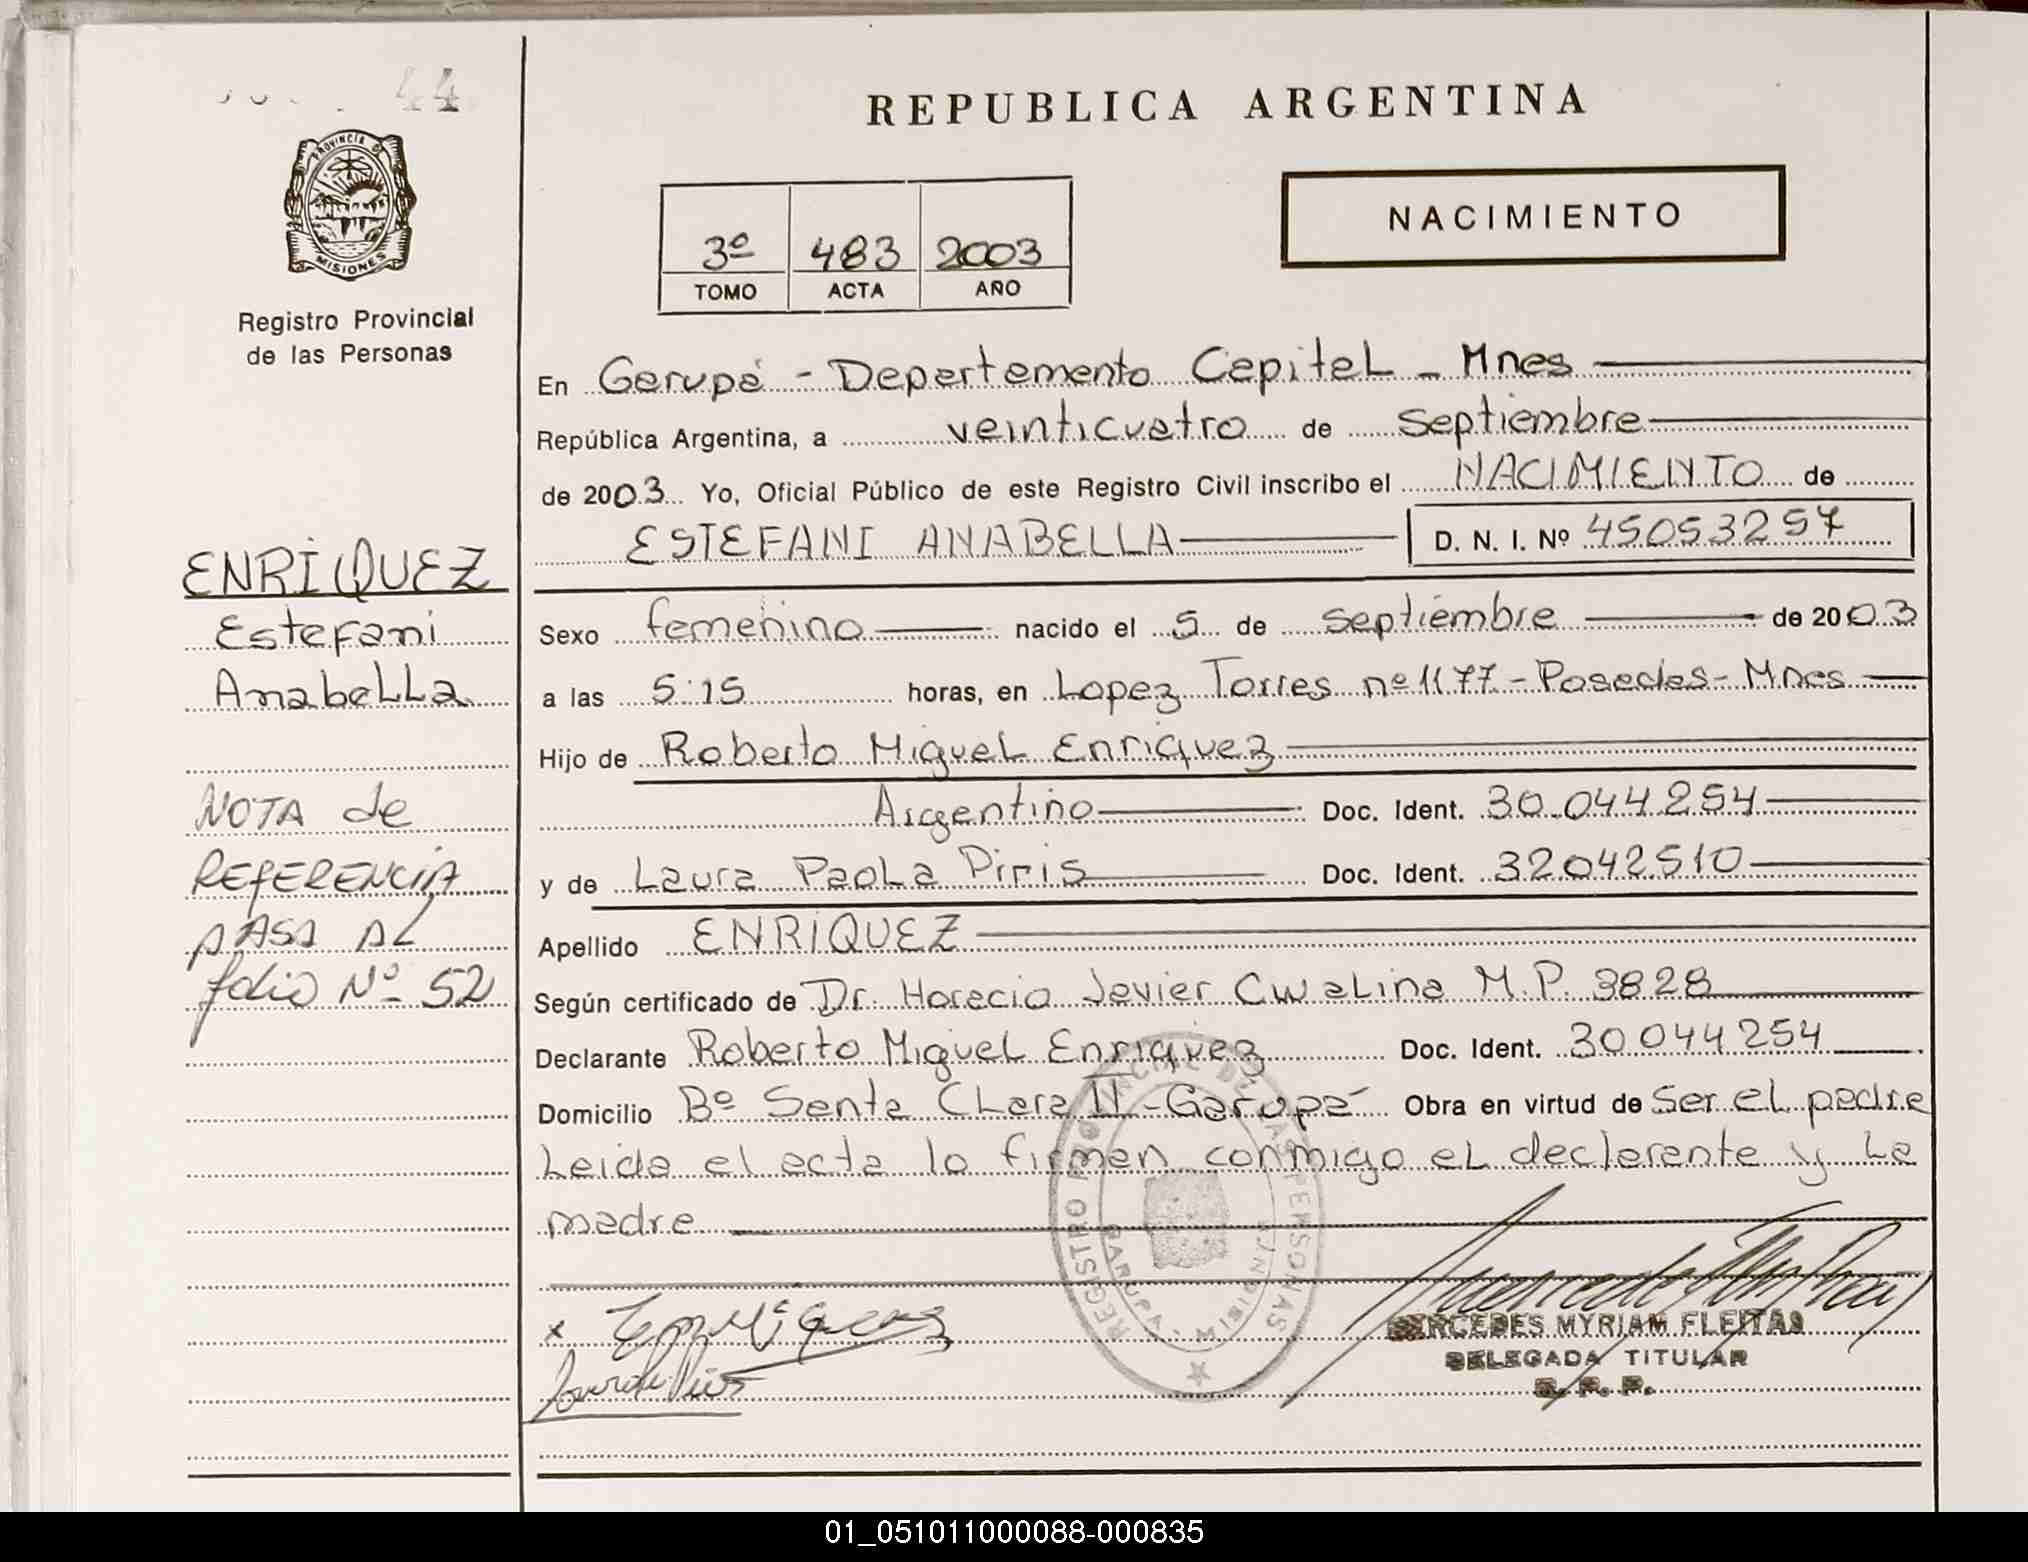 44
PROVINCIA DE
MISIONES
Registro Provincial
de las Personas
ENRIQUEZ
Estefani
Anabella
NOTA de
REFERENCIA
PASA AL
folio Nº 52
REPUBLICA ARGENTINA
NACIMIENTO
3º 483 2003
TOMO ACTA AÑO
En Garupá - Departamento Capital - Mnes
República Argentina, a veinticuatro de septiembre
de 2003 Yo, Oficial Público de este Registro Civil inscribo el NACIMIENTO de
ESTEFANI ANABELLA D. N. I. Nº 45053257
Sexo femenino nacido el 5 de septiembre de 2003
a las 5:15 horas, en Lopez Torres nº 1177 - Posadas - Mnes
Hijo de Roberto Miguel Enriquez
Argentino Doc. Ident. 30.044.254
y de Laura Paola Piris Doc. Ident. 32042510
Apellido ENRIQUEZ
Según certificado de Dr. Horacio Javier Cwalina M.P. 3828
Declarante Roberto Miguel Enriquez Doc. Ident. 30044254
Domicilio Bº Santa Clara II - Garupá Obra en virtud de ser el padre
Leida el acta la firman conmigo el declarante y la
madre
REGISTRO PROVINCIAL DE LAS PERSONAS
GARUPA - MISIONES
MERCEDES MYRIAM FLEITAS
DELEGADA TITULAR
R. P. P.
01_051011000088-000835